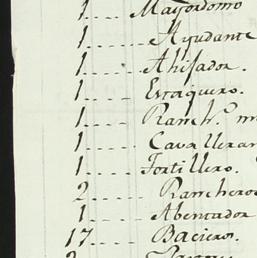 1.... Mayordomo
1...... Ayudante
1...... Ahijador.
1..... Estaquero.
1..... Ranch.º m
1.... Cavalleran
1.... Tortillero.
2...... Rancheros
1..... Abentador
17.... Baciero.